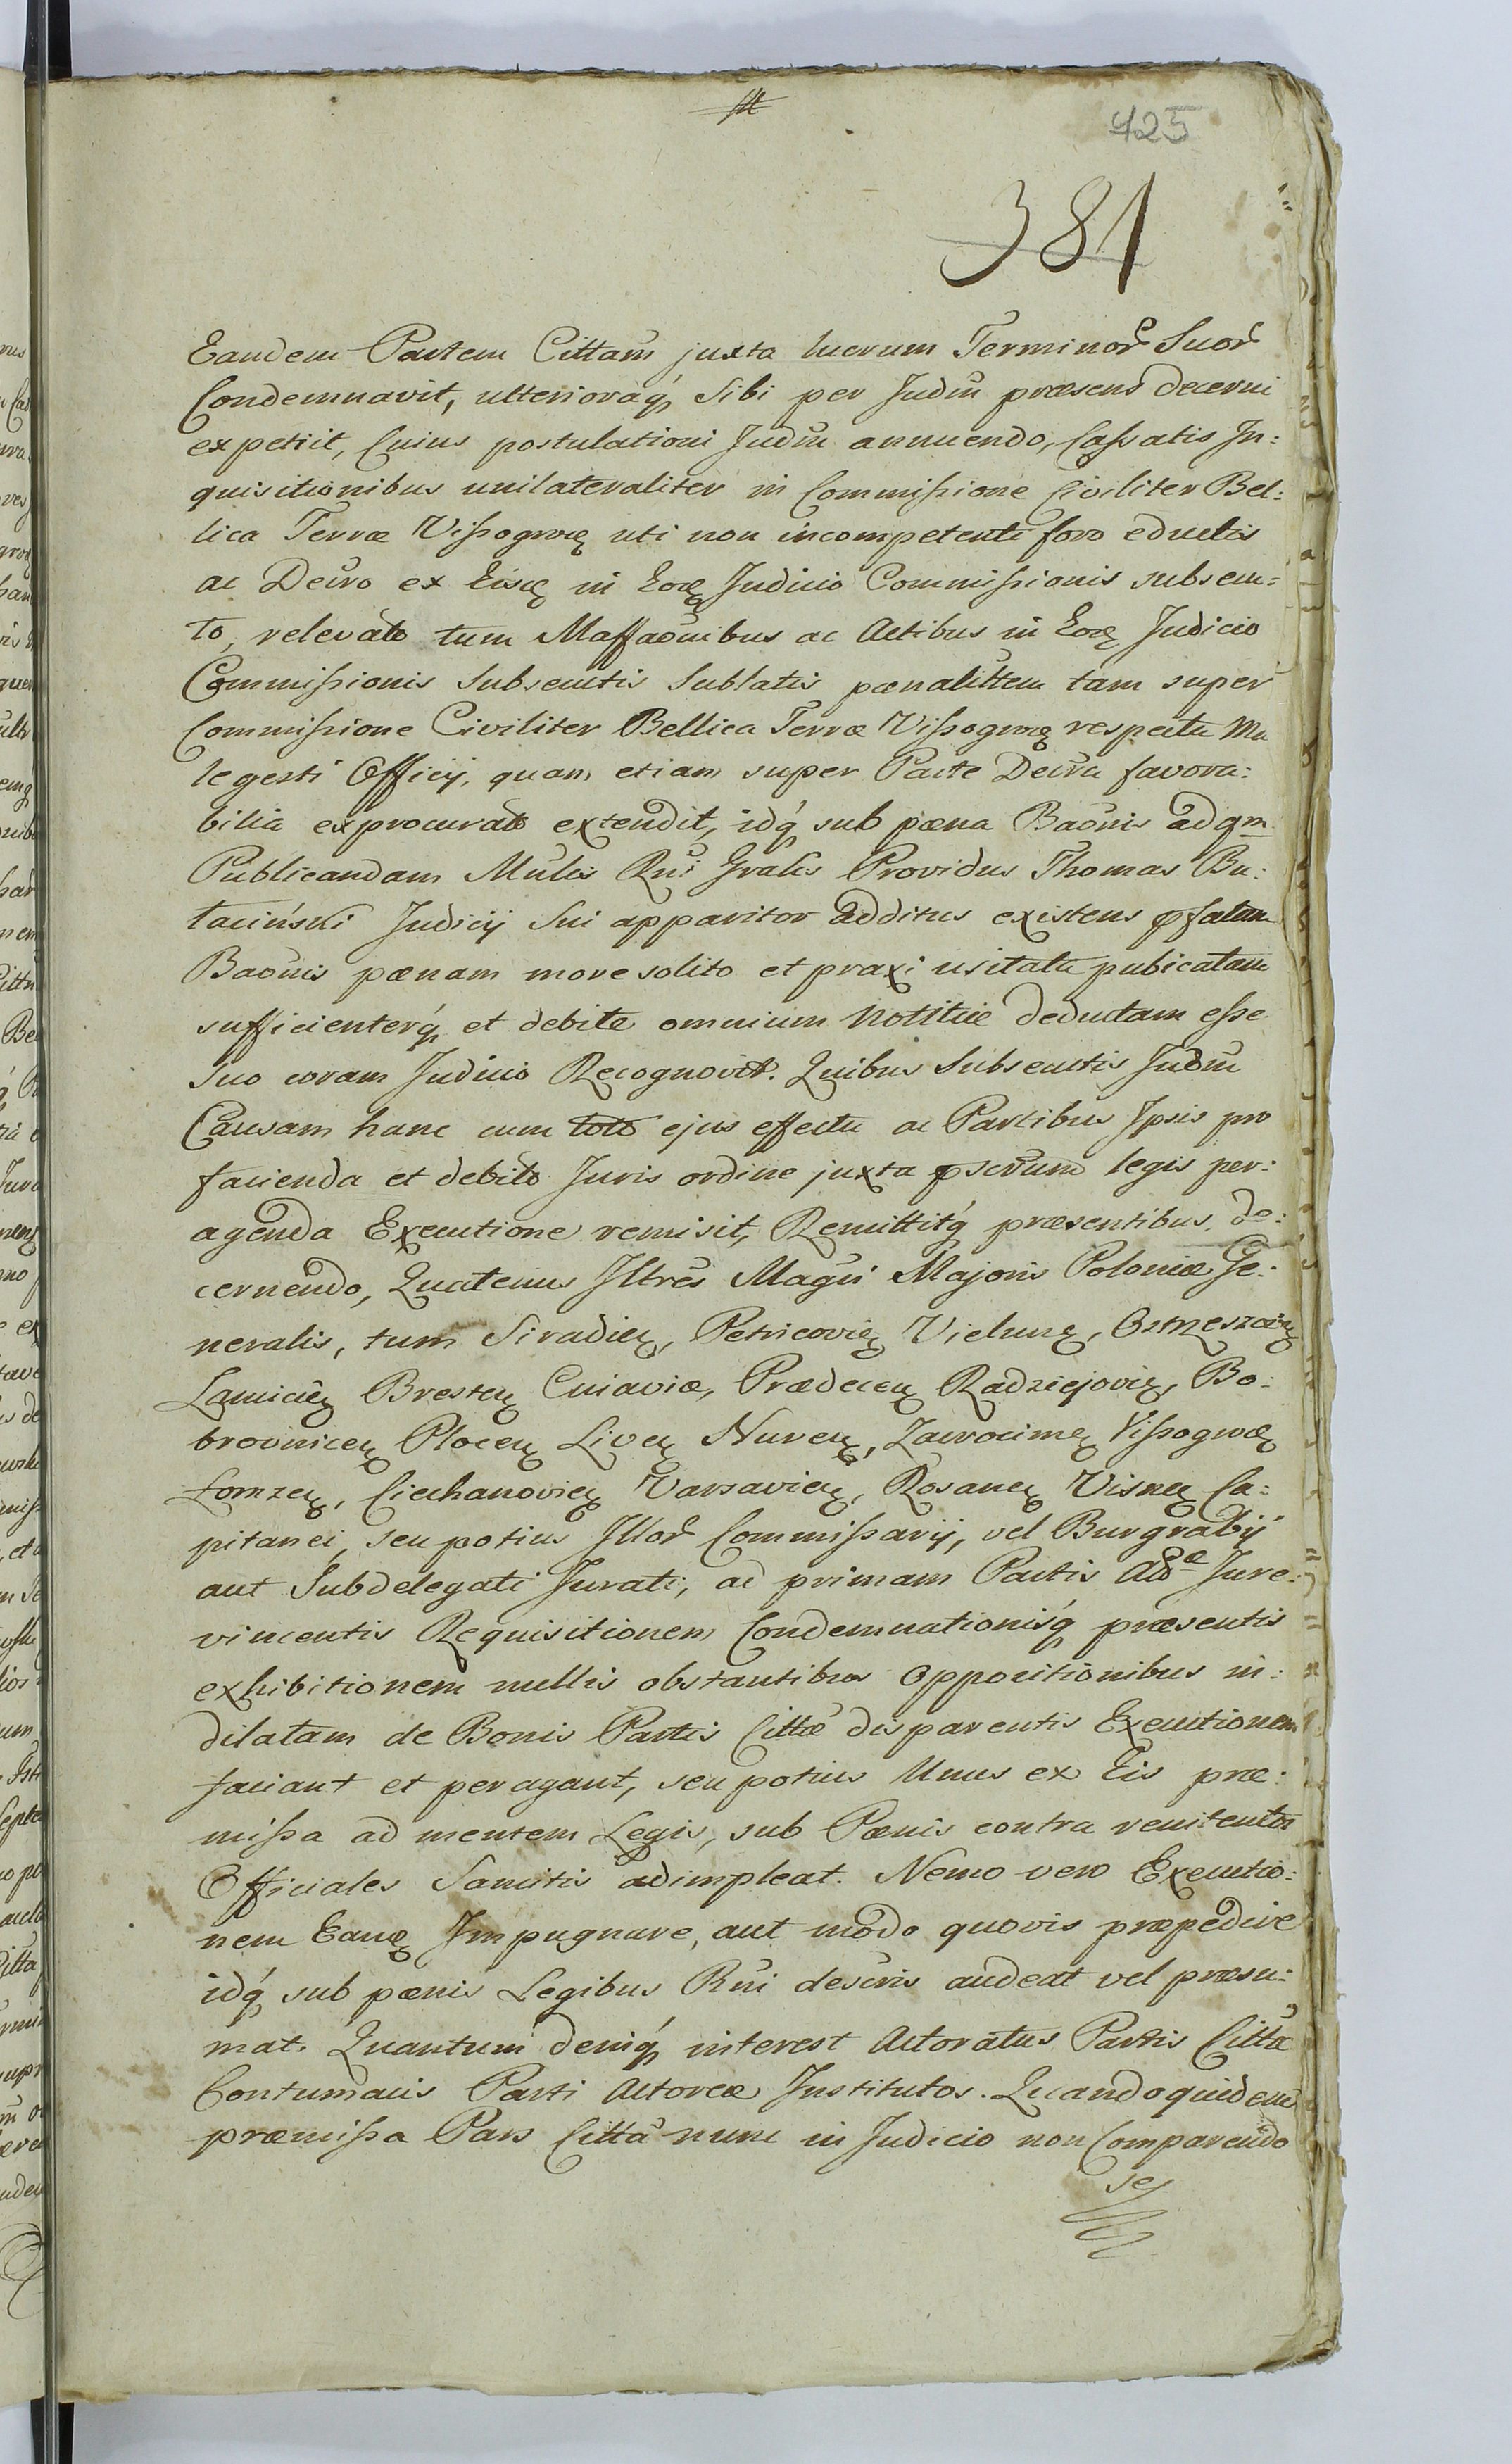 425
381
Eandem Partem Cittam juxta lucrum Terminor Suor
Condemnavit, ulterioraq, Sibi per Judm præsens decerni
expetiit, Cuius postulationi Judm annuendo, Cassatis In:
quisitionibus unilateraliter in Commissione Civiliter Bel:
lica Terræ Vissogrỏeȩ uti non incompetenti foro eductis
ac Decro ex Eisȩ in Eoȩ Judicio Commissionis subsecu=
to, relevato tum Maffaonibus ac Actibus in Eoȩ Judicio
Commissionis Subsecutis Sublatis pœnalittem tam super
Commissione Civiliter Bellica Terræ Vissogrỏeȩ respectu Ma
legesti Officij, quam etiam super Parte Decra favora:
bilia exprocurato extendit, idq́ sub pœna Baonis ad qm
Publicandam Mulis Rni Gralis Providus Thomas Bu:
taciński Judicij Sui apparitor additus existens pfatam
Baonis pœnam more solito et praxi usitata pubicatam
sufficienterq́ et debite omnium Notitiæ deductam esse
Suo coram Judicio Recognovit. Quibus Subsecutis Judm
Causam hanc cum toto ejus effectu ac Partibus Ipsis pro
facienda et debito Juris ordine juxta pscrum legis per:
agenda Executione remisit, Remittitq́ præsentibus, de:
cernendo, Quatenus Illres Magni Majoris Poloniæ Ge:
neralis, tum Siradieȩ, Petricovieȩ Vieluneȩ, Ostrzeszovieȩ
Lanicieȩ Bresteȩ Cuiaviæ, Prædeceȩ Radziejovieȩ, Bo:
brovniceȩ Ploceȩ Liveȩ Nureȩ, Zacrocimeȩ Vissogroeȩ
Łomzeȩ, Ciechanovieȩ Varsavieȩ, Rosaneȩ Visneȩ Ca:
pitanei, seu potius Illor Commissarij, vel Burgrabij
aut Subdelegati Jurati, ad primam Partis Actoreæ Jure:
vincentis Requisitionem Condemnationisq́ præsentis
exhibitionem nullis obstantibus oppocitionibus in:
dilatam de Bonis Partis Cittæ disparentis Executionem
faciant et peragant, seu potius Unus ex Eis præ:
missa ad mentem Legis, sub Pœnis contra renitentes
Officiales Sancitis adimpleat. Nemo vero Executio:
nem Eanȩ Impugnare, aut modo quovis præpedire
idq́ sub pœnis Legibus Rni descris audeat vel præsu:
mat. Quantum deniq́ interest Actoratus Partis Cittæ
Contumacis Parti Actoreæ Institutos. Quandoquidem
præmissa Pars Citta nunc in Judicio non Comparendo
se